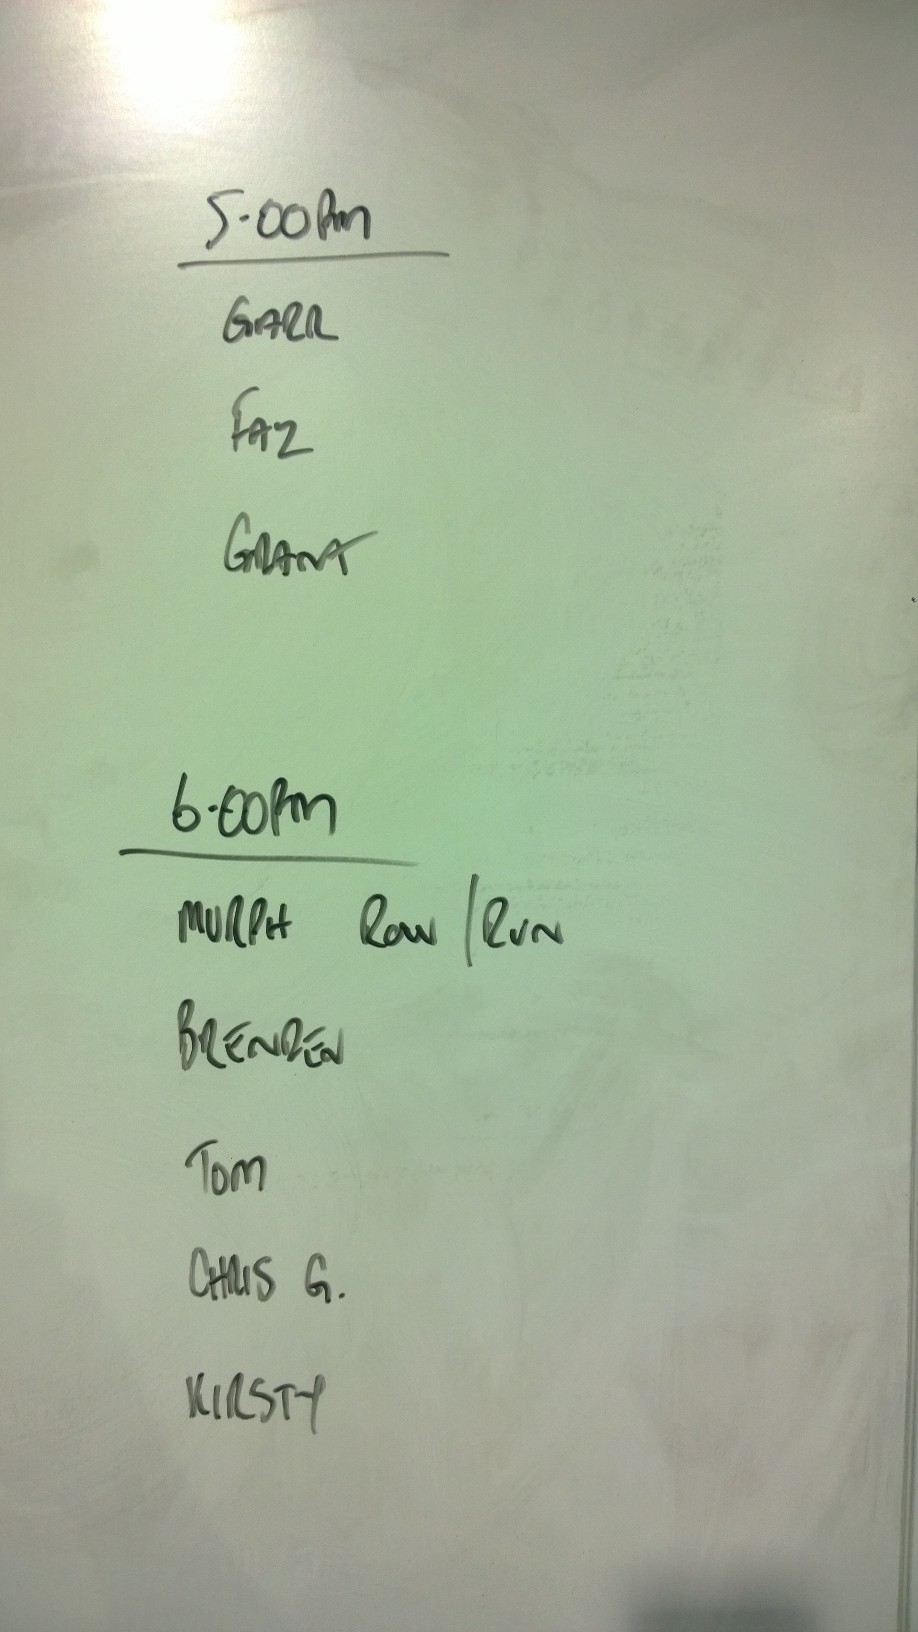 5.00Pm
GARR
FAZ
GRANT
6.00Pm
MURPH ROW / RUN
BRENDEN
TOM
CHRIS G.
KIRSTY